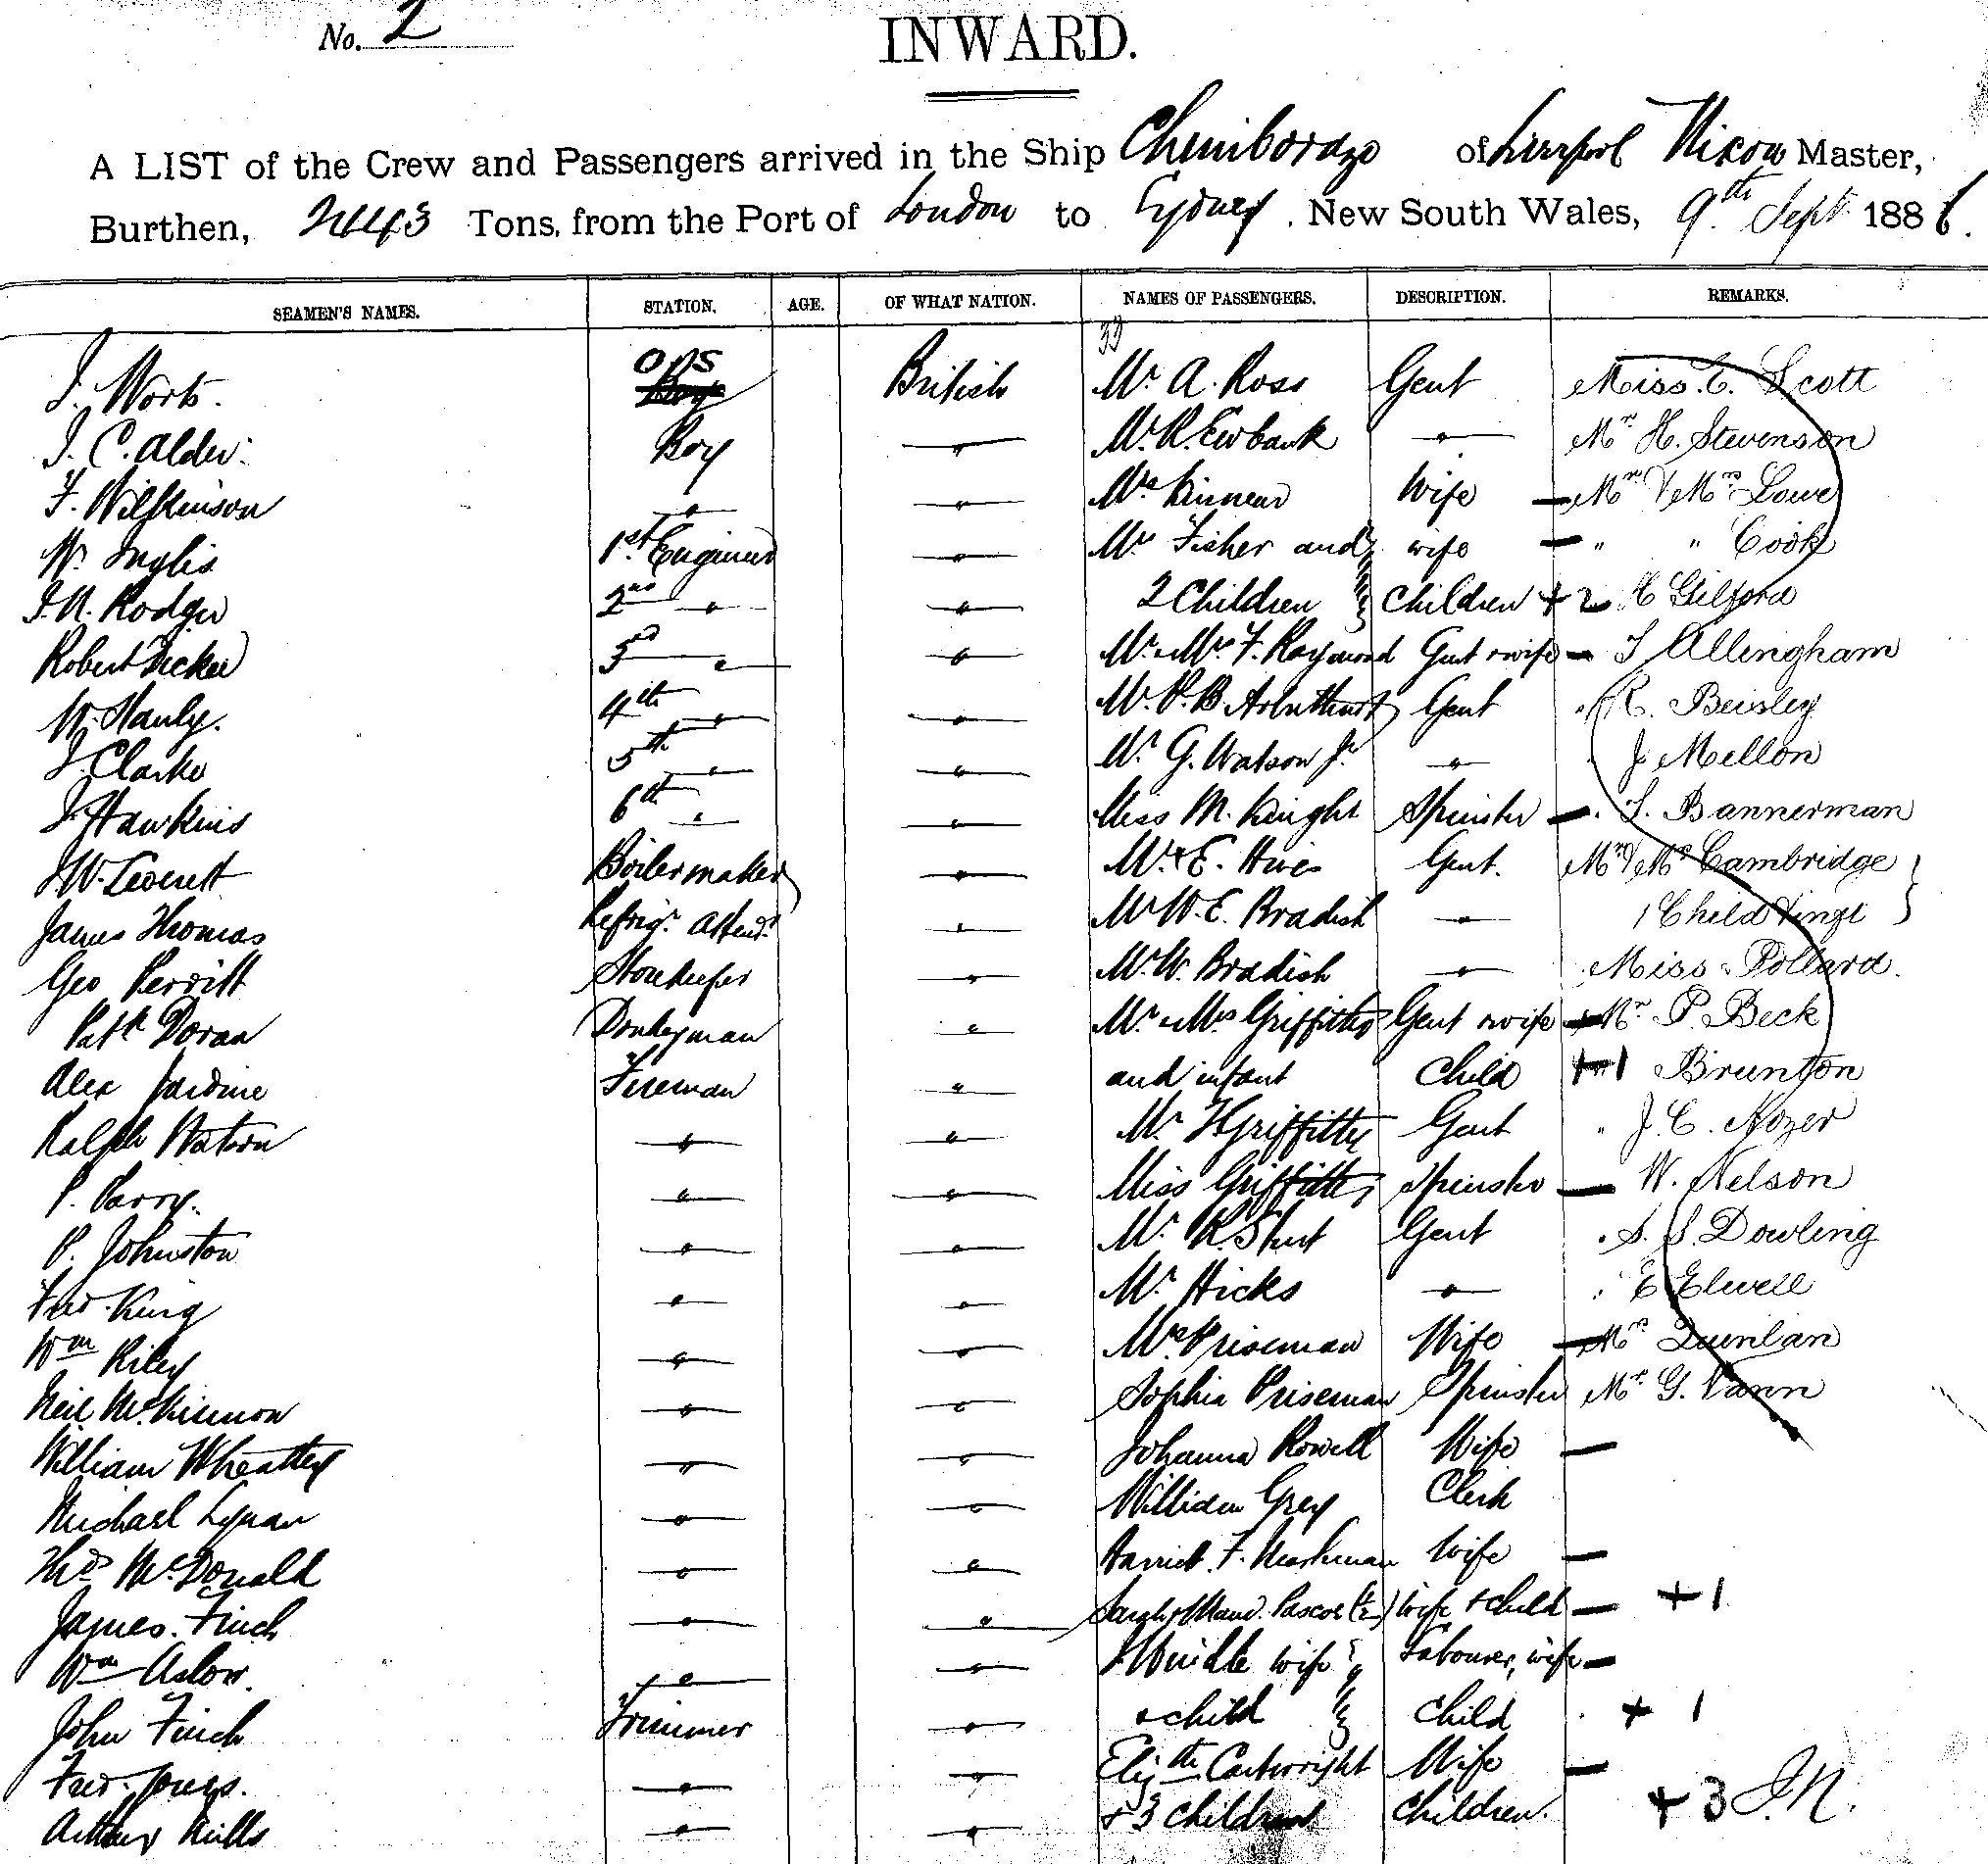 No. 2
INWARD.
A LIST of the Crew and Passengers arrived in the Ship Chimborazo of Liverpool Nixon Master,
Burthen, 2443 Tons, from the Port of London to Sydney, New South Wales, 9th Sept 1886.
SEAMEN'S NAMES. STATION. AGE. OF WHAT NATION. NAMES OF PASSENGERS. DESCRIPTION. REMARKS.
33
J. Worts. ODS British Mr A. Ross Gent Miss C. Scott
J. C. Alder. Boy " Mr R. Ewbank " Mr H. Stevenson
F. Wilkinson " " Mrs Kinnear Wife — Mr & Mrs Lowe
W. Inglis 1st Engineer " Mrs Fisher and wife — " " Cook
J. N. Rodger 2nd " " 2 Children Children + 2 H Gilford
Robert Dicker 3rd " " Mr & Mrs F. Raymond Gent & wife — T Allingham
W. Hanly. 4th " " Mr P. B. Arbuthnot Gent " R. Beisley
J. Clarke 5th " " Mr G. Watson Jr " J Mellon
J. Hawkins 6th " " Miss M. Knight Spinster — . T. Bannerman
J. W. Leverett Boilermaker " Mr E. Hives Gent. Mr & Mrs Cambridge
James Thomas Refrigr Attendt " Mr W. E. Bradish " 1 Child & inft
Geo Perritt Storekeeper " Mr W. Bradish " Miss Pollard.
Patk Doran Donkeyman " Mr & Mrs Griffiths Gent & wife — Mr P. Beck
Alex Jardine Fireman " and infant Child + 1 Brunton
Ralph Watson " " Mr H Griffiths Gent " J. C. Nozer
P. Parry. " " Miss Griffiths Spinster — W. Nelson
P. Johnston " " Mr R. Gent . S. S. Dowling
Fred. King " " Mr Hicks " E Elwell
Wm Riley " " Mrs Priseman Wife — Mrs Quinlan
Neil McKinnon " " Sophia Priseman Spinster Mr G. Vann
William Wheatley " " Johanna Rowell Wife —
Michael Lynan " " William Grey Clerk
Thos McDonald " " Harriet F. Wife —
James Finch " " Sarah & Maud Pascoe Wife & child — + 1
Wm " " wife Labourer, wife —
John Finch Trimmer " & child Child + 1
Fred. Jones. " " Elizth Cartwright Wife —
Arthur Mills " " + 3 children Children. + 3 J.N.